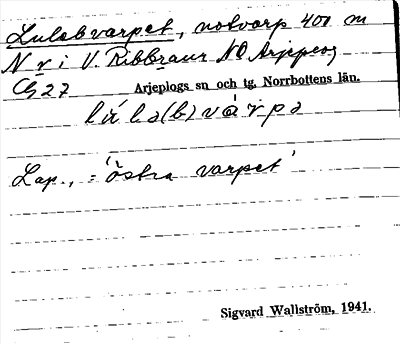 Lulebvarpet, notvarp 400 m
N r i V. Ribbraur NO Arjeplog
27 Arjeplogs sn och tg. Norrbottens län.
lúlə(b)vàrpə
Lap., = 'östra varpet'
Sigvard Wallström, 1941.